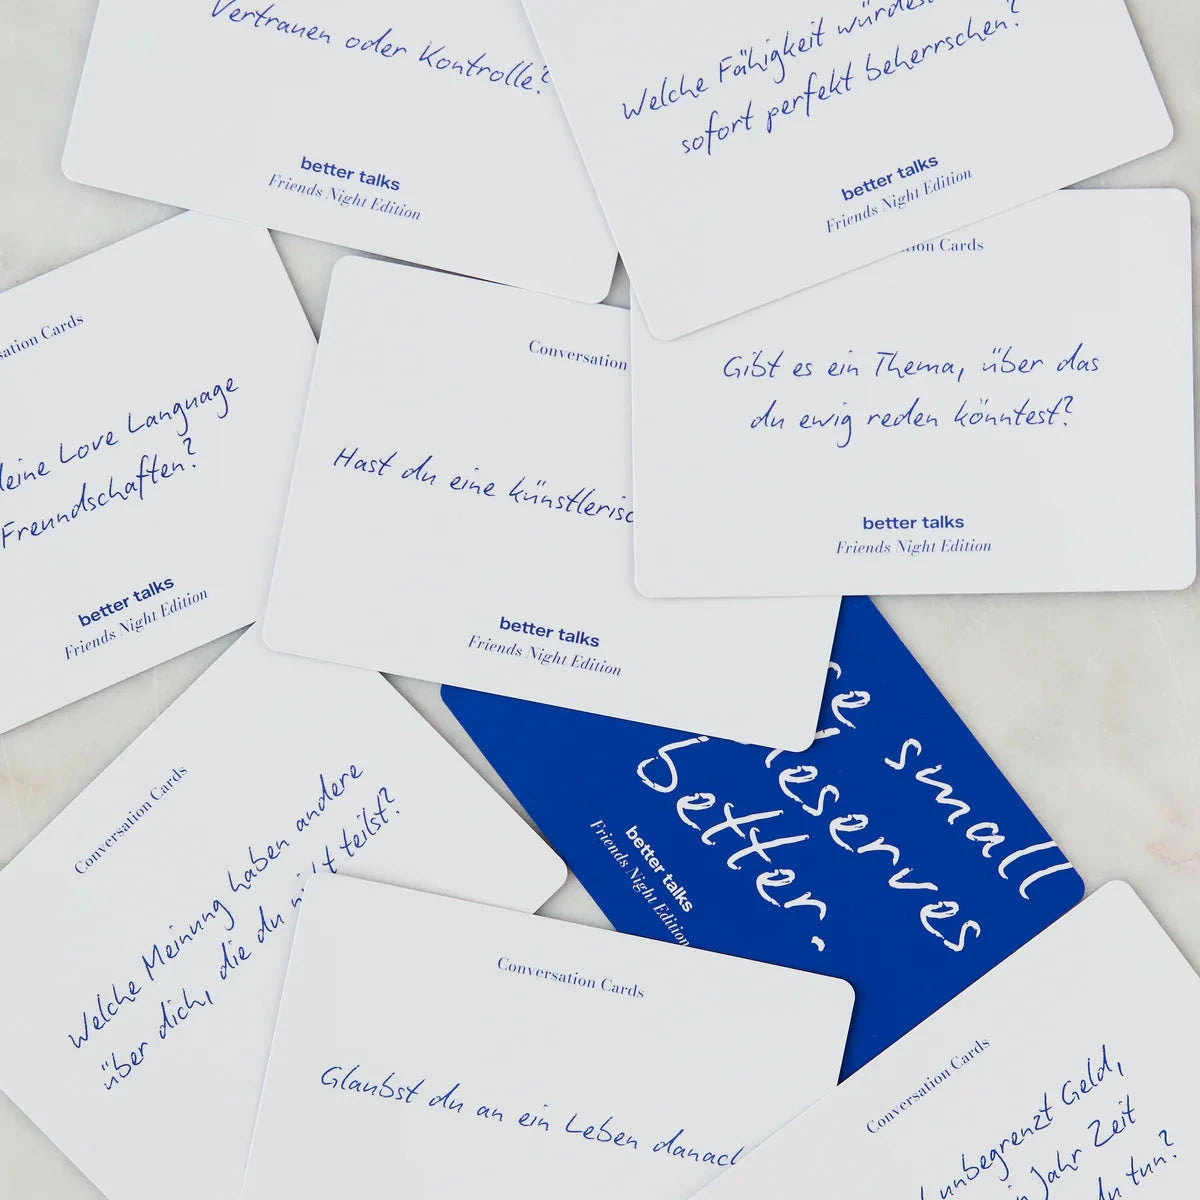 Vertrauen oder Kontrolle?
better talks
Friends Night Edition
Welche Fähigkeit
sofort perfekt beherrschen?
better talks
Friends Night Edition
Cards
Love Language
Freundschaften?
better talks
Friends Night Edition
Conversation
Hast du eine
better talks
Friends Night Edition
Cards
Gibt es ein Thema, über das
du ewig reden könntest?
better talks
Friends Night Edition
small
better.
better talks
Friends Night Edition
Conversation Cards
Welche Meinung haben andere
über dich, die du teilst?
Conversation Cards
Glaubst du an ein Leben
Conversation Cards
unbegrenzt Geld,
Jahr Zeit
du tun?